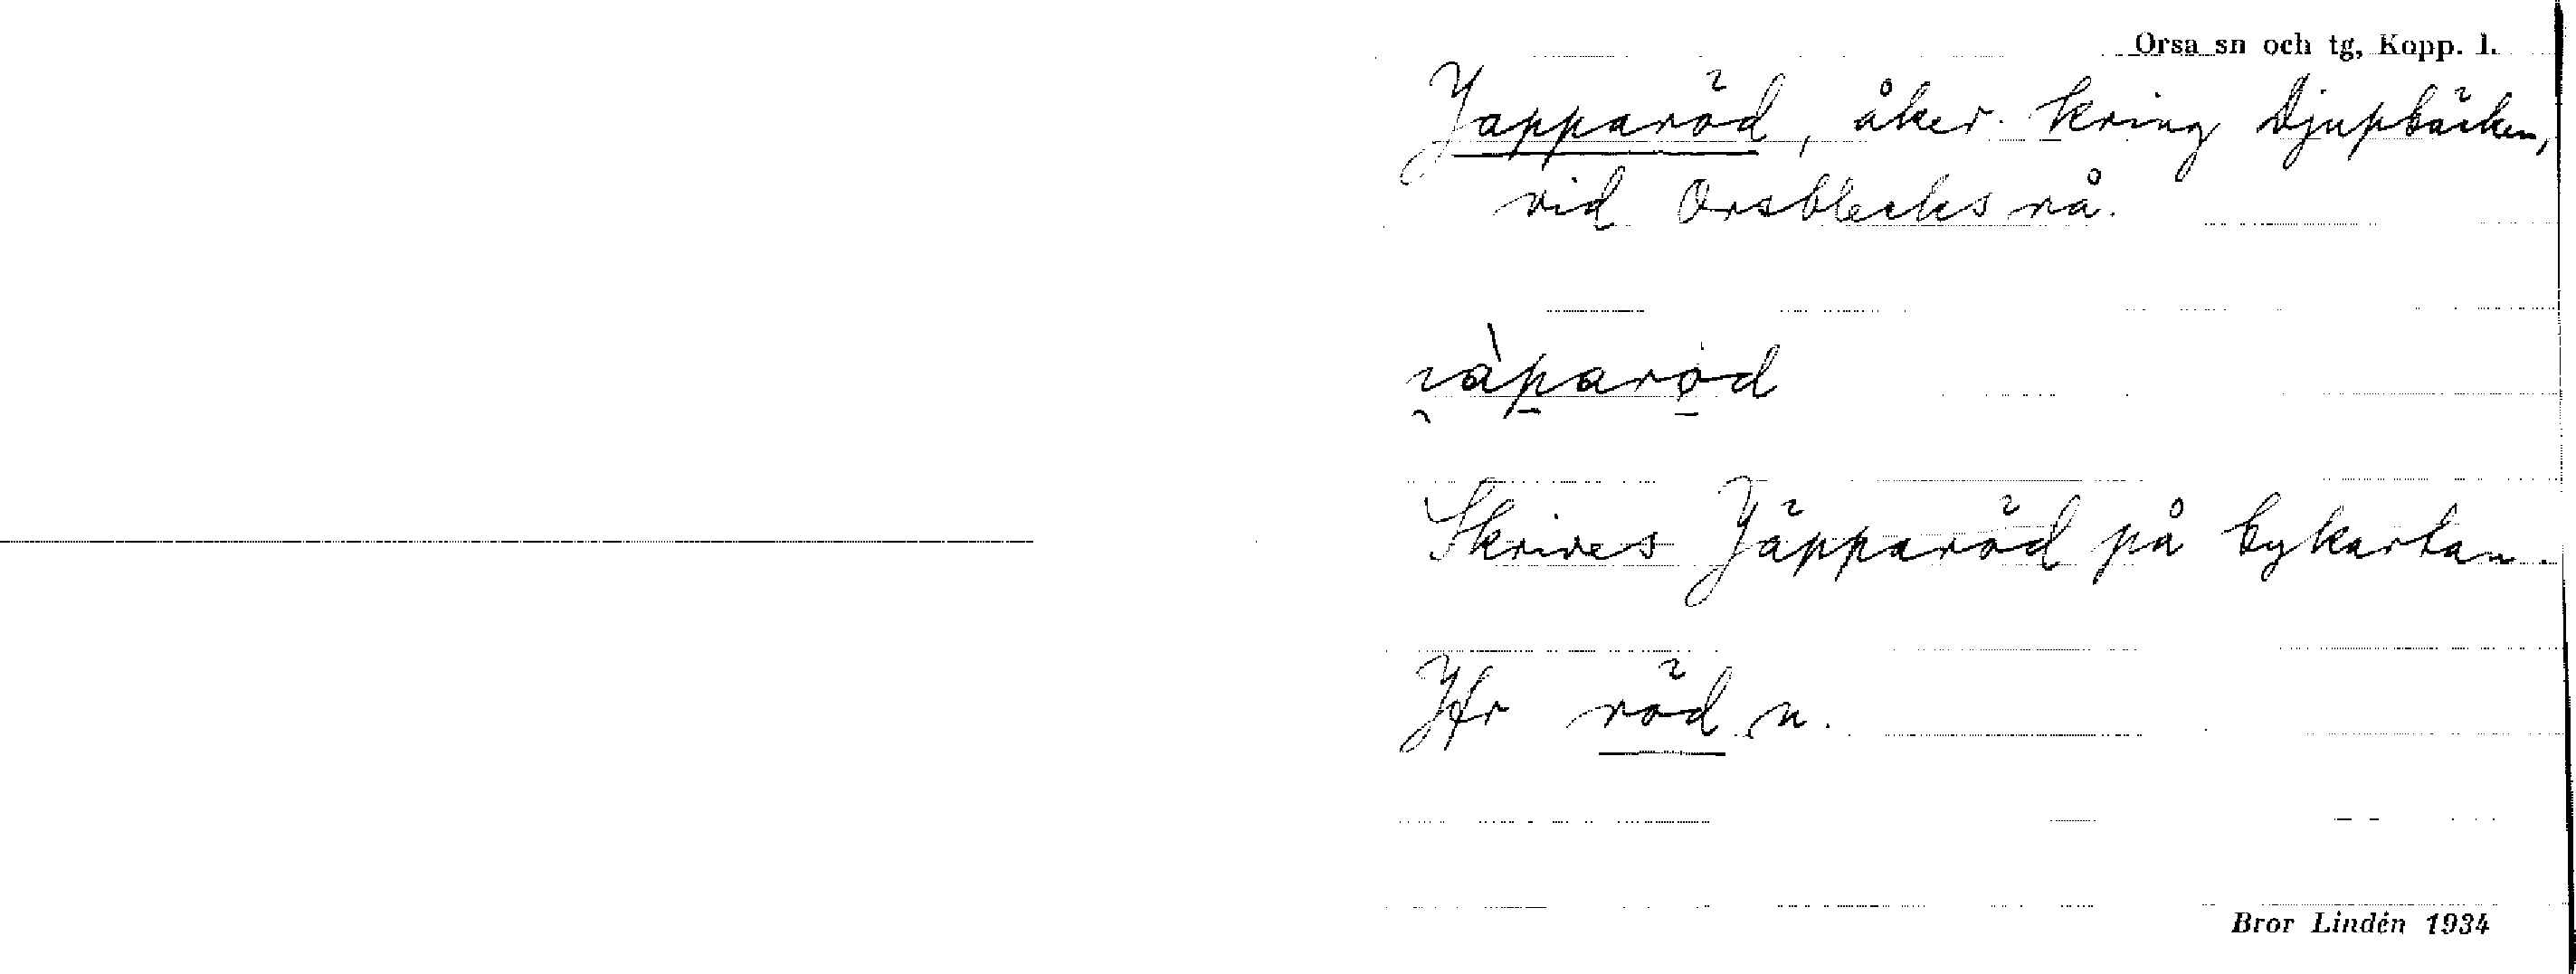 Orsa sn och tg, Kopp. l.
Japparöd, åker kring Djupbäcken,
vid Orsblecks rå.
Skrives Jäpparöd på bykartan.
Jfr röd n.
Bror Lindén 1934